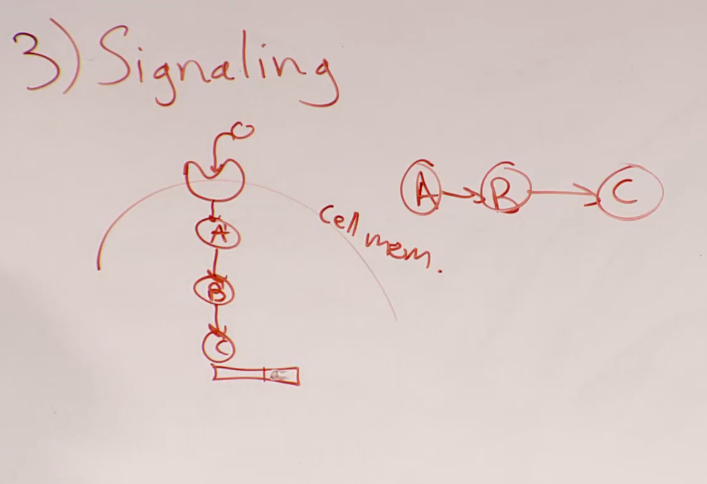 3) Signaling
A
B
C
Cell mem.
A
B
C